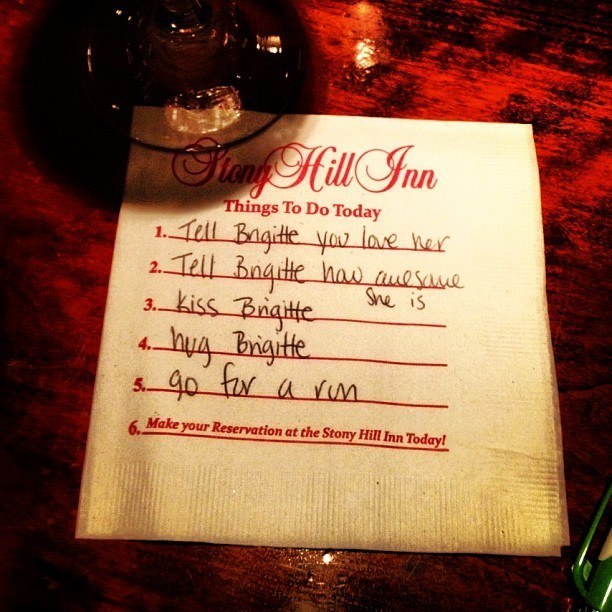 Stony Hill Inn
Things To Do Today
1. Tell Brigitte you love her
2. Tell Brigitte how awesome
she is
3. kiss Brigitte
4. hug Brigitte
5. go for a run
6. Make your Reservation at the Stony Hill Inn Today!